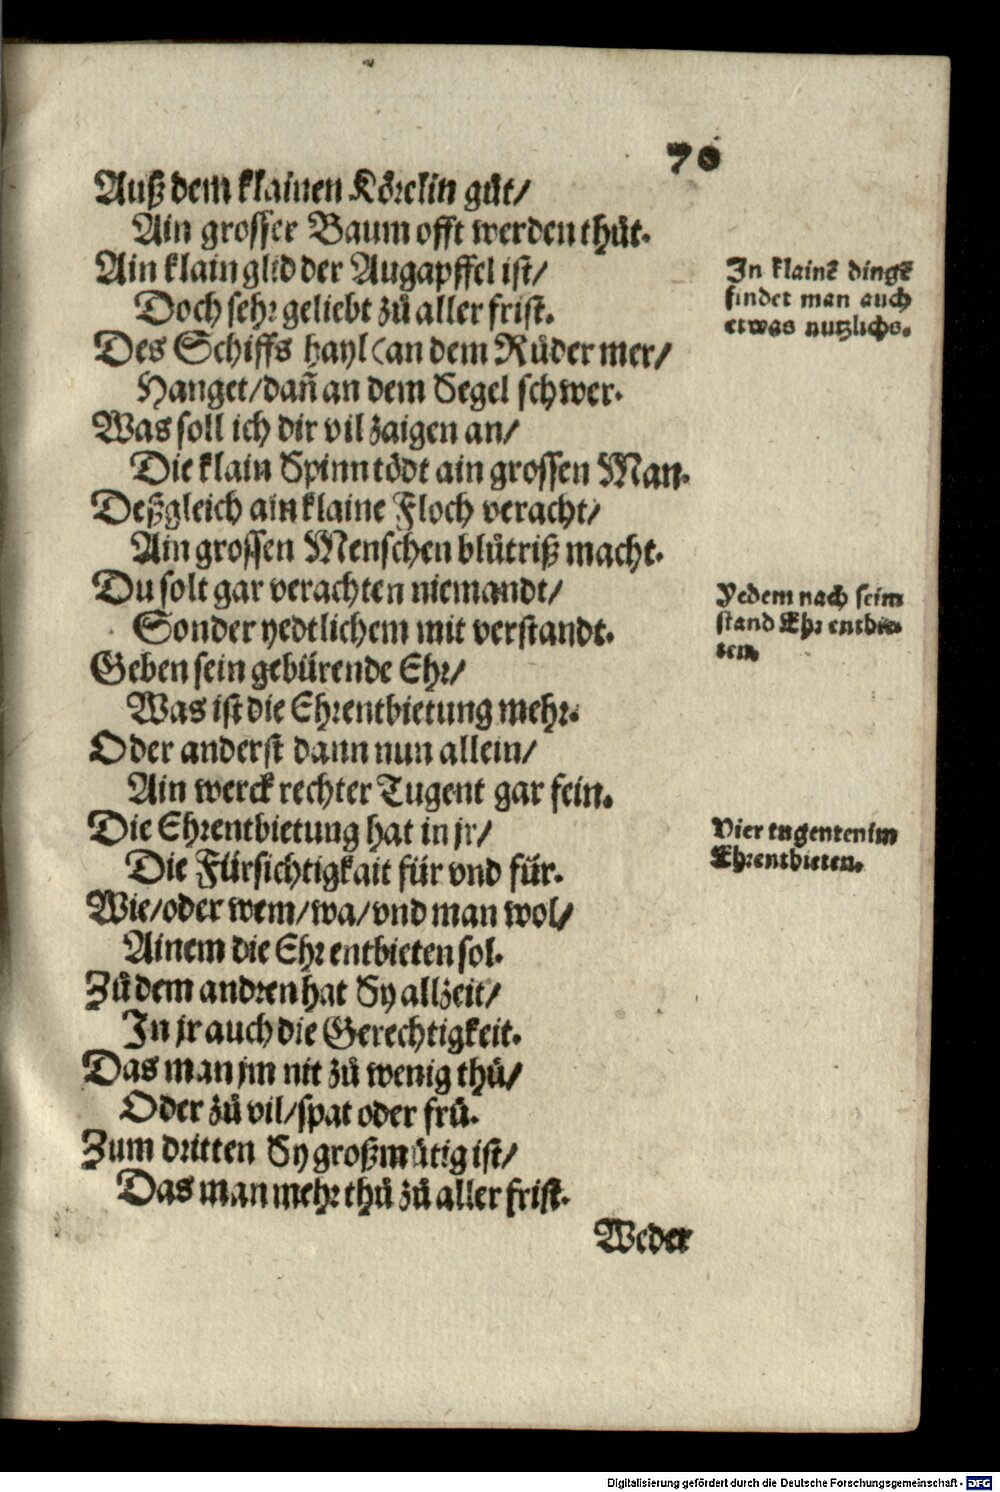 70
Auß dem klainen Körelin gůt/
Ain grosser Baum offt werden thůt.
Ain klain glid der Augapffel ist/
Doch sehr geliebt zů aller frist.
Des Schiffs hayl (an dem Růder mer/
Hanget/dañ an dem Segel schwer.
Was soll ich dir vil zaigen an/
Die klain Spinn tödt ain grossen Man.
Deßgleich ain klaine Floch veracht/
Ain grossen Menschen blůtriß macht.
Du solt gar verachten niemandt/
Sonder yedtlichem mit verstandt.
Geben sein gebürende Ehr/
Was ist die Ehrentbietung mehr.
Oder anderst dann nun allein/
Ain werck rechter Tugent gar fein.
Die Ehrentbietung hat in jr/
Die Fürsichtigkait für vnd für.
Wie/oder wem/wa/vnd man wol/
Ainem die Ehr entbieten sol.
Zů dem andren hat Sy allzeit/
In jr auch die Gerechtigkeit.
Das man jm nit zů wenig thů/
Oder zů vil/spat oder frů.
Zum dritten Sy großmůtig ist/
Das man mehr thů zů aller frist.
Weder
In klainẽ dingẽ
findet man auch
etwas nutzlichs.
Yedem nach seim
stand Ehr entbie-
ten.
Vier tugenten im
Ehrentbieten.
Digitalisierung gefördert durch die Deutsche Forschungsgemeinschaft - DFG